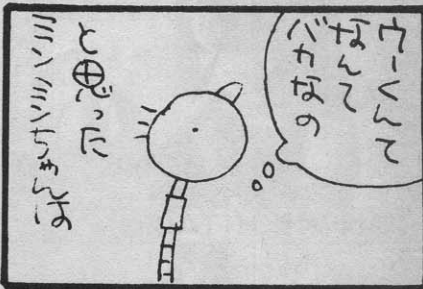 ウーくんて
なんて
バカなの
と思った
ミンミンちゃんは